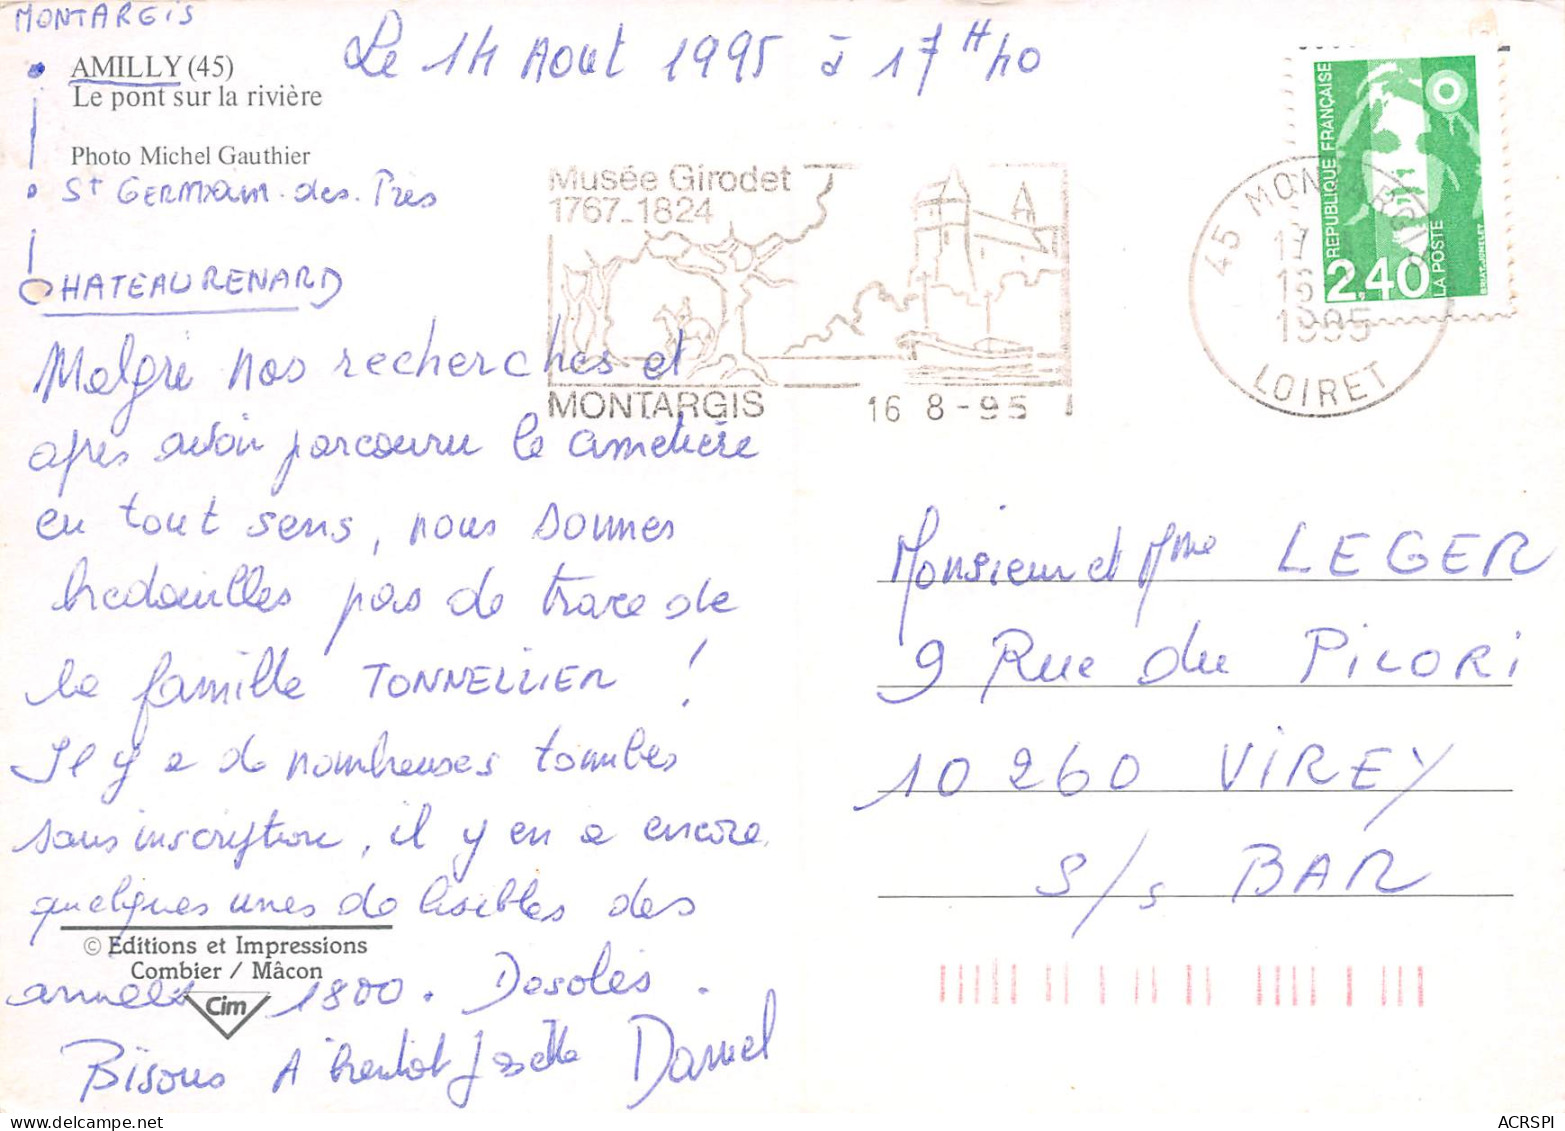 MONTARGIS
AMILLY (45)
Le pont sur la rivière
Photo Michel Gauthier
St GERMAIN-des-Près
CHATEAURENARD
Le 14 Aout 1995 à 17H40
Malgré nos recherches et
après avoir parcouru le cimetière
en tout sens, nous sommes
bredouilles pas de trace de
la famille TONNELLIER !
Il y a de nombreuses tombes
sans inscription, il y en a encore
quelques unes de lisibles des
années 1800. Desolés.
Bisous A bientot Josette Daniel
© Editions et Impressions
Combier / Mâcon
Cim
Musée Girodet
1767_1824
MONTARGIS
16 8-95
45 MONTARGIS
17
16
1995
LOIRET
REPUBLIQUE FRANÇAISE
2,40
LA POSTE
BRIAT-JUMELET
Monsieur et Mme LEGER
9 Rue du PILORI
10260 VIREY
S/s BAR
ACRSPI